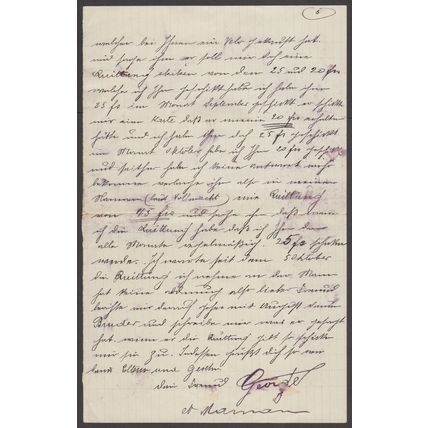 5
welcher bei Ihnen ein Velo gekauft hat.
und sage ihm er soll mir doch eine
Quittung schicken von den 25 und 20 frs
welche ich ihm geschickt habe ich habe ihm
25 frs im Monat September geschickt er schickte
mir eine Karte daß er meine 20 frs erhalten
hätte und ich habe ihm doch 25 frs geschickt
im Monat Oktober habe ich ihm 20 frs geschickt
und seither habe ich keine Antwort mehr
bekommen verlange ihm also in meinem
Namen (mit Vollmacht) eine Quittung
von 45 frs und sage ihm daß wenn
ich die Quittung habe daß ich ihm dann
alle Monate regelmäßig 25 frs schicken
werde. Ich warte seit dem 5 Oktober
die Quittung ich nehme an der Mann
hat keine Ordnung also lieber Freund
mir darauf gehe mit August
Bruder und schreibe mir was er gesagt
hat. wenn er die Quittung gibt so schicke
mir sie zu. Indessen grüßt dich so wie
Eltern und
dein Freund George
et Maman